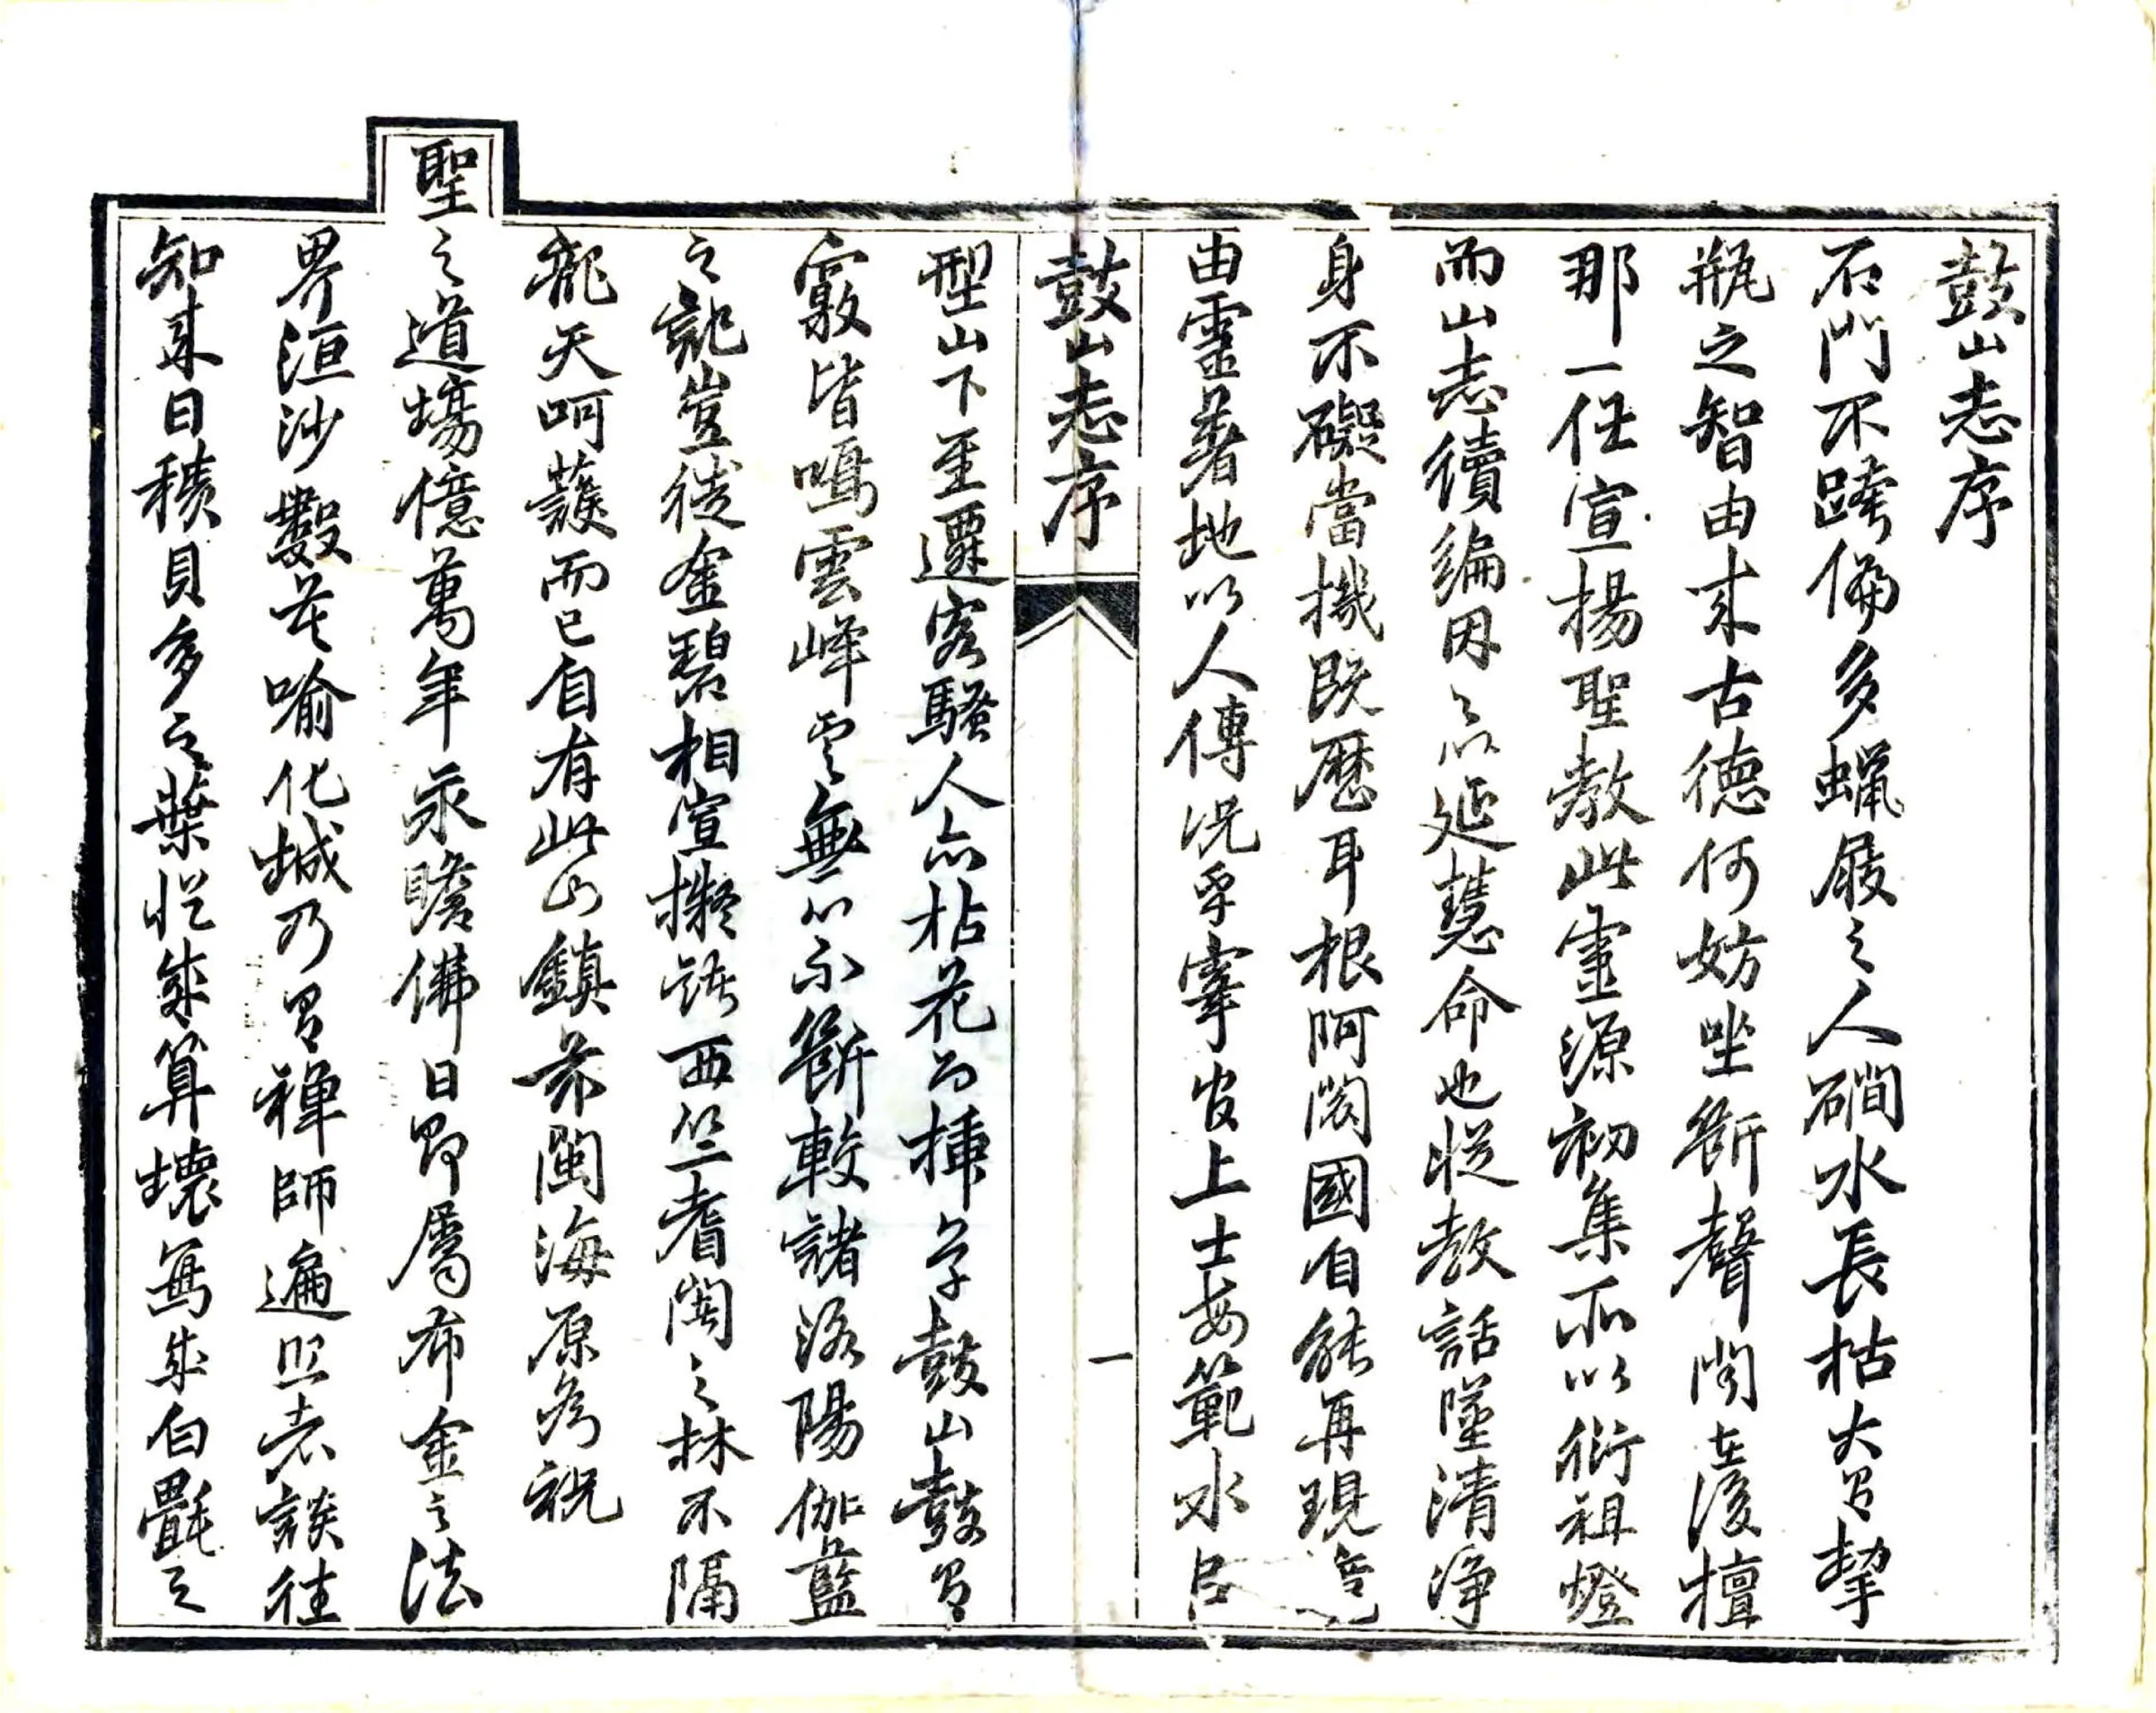 鼓山志序
石門不跨偏多蠟屐之人磵水長枯大留挈
瓶之智由來古德何妨坐斷聲聞在後檀
那一任宣揚聖教此靈源初集所以衍祖燈
而山志續編因之以延慧命也從教話墮清淨
身不礙當機既歷耳根阿閦國自能再現
由靈著地以人傳況乎宰官上士母範水
鼓山志序
一
型山下至遷客騷人亦拈花而捶字鼓山鼓
竅皆鳴雲峰雲無心不斷較諸洛陽伽藍
之記豈徒金碧相宣擬諸西竺耆闍之林不隔
龍天呵護而已自有此山鎮茲閩海原為祝
聖之道場億萬年永瞻佛日即屬布金之法
界洹沙數足喻化城乃留禪師遍照衣談往
知來日積貝多之葉恍成算壞無生白氎之